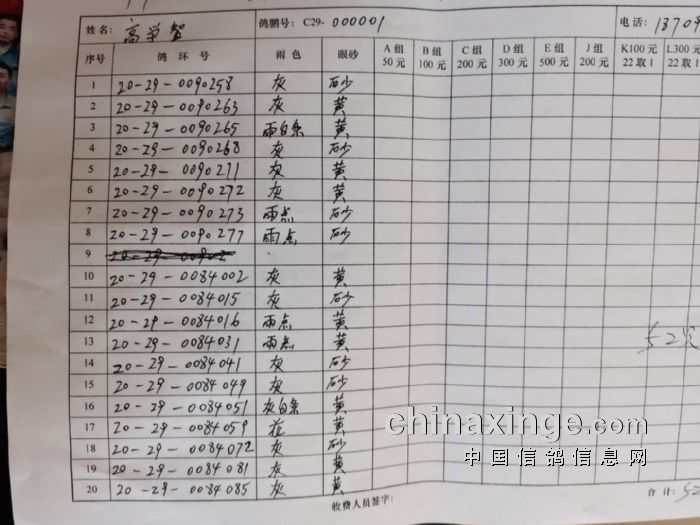 姓名: 高学智 鸽鹏号: C29- 000001 电话: 18709
序号 鸽环号 雨色 眼砂 A组 50元 B组 100元 C组 200元 D组 300元 E组 500元 J组 200元 K100元 22取1 L300元 22取1
1 20-29-0090258 灰 砂
2 20-29-0090263 灰 黄
3 20-29-0090265 雨白条 黄
4 20-29-0090268 灰 砂
5 20-29-0090271 灰 黄
6 20-29-0090272 灰 黄
7 20-29-0090273 雨点 砂
8 20-29-0090277 雨点 砂
9
10 20-29-0084002 灰 黄
11 20-29-0084015 灰 砂
12 20-29-0084016 雨点 黄
13 20-29-0084031 雨点 黄
14 20-29-0084041 灰 砂
15 20-29-0084049 灰 砂
16 20-29-0084051 灰白条 黄
17 20-29-0084059 花 黄
18 20-29-0084072 灰 砂
19 20-29-0084081 灰 黄
20 20-29-0084085 灰 黄
收费人员签字: 合计: 52
chinaxinge.com
中国信鸽信息网